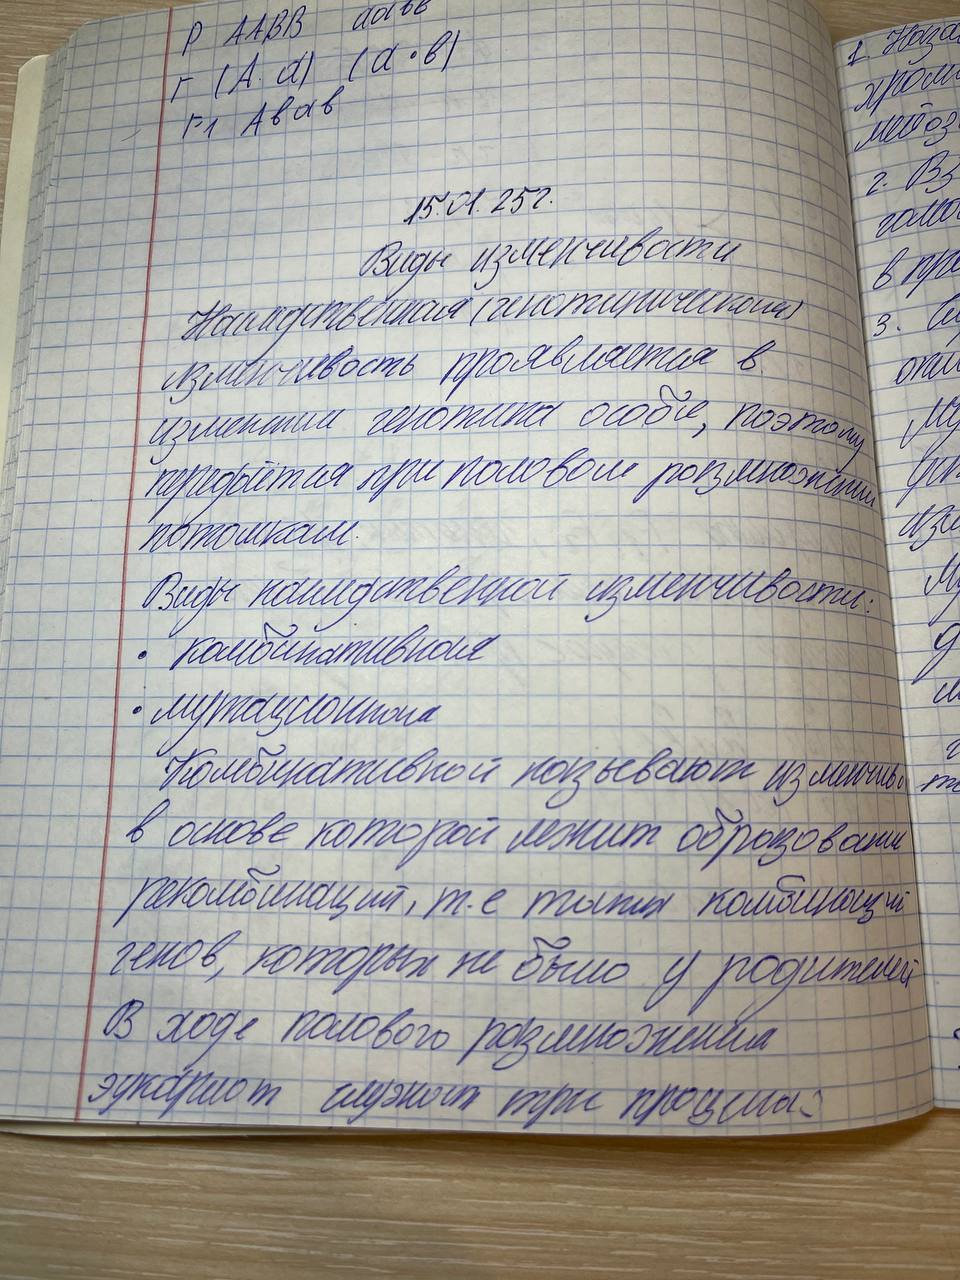 Р ААВВ аавв
Г (А·d) (а·в)
F1 Ав ав
15.01.25г.
Виды изменчивости
Наследственная (генотипическая)
изменчивость проявляется в
изменении генотипа особе, поэтому
передаётся при половом размножении
потомкам.
Виды наследственной изменчивости:
• комбинативная
• мутационная
Комбинативной называют изменчиво
в основе которой лежит образовани
рекомбинаций, т.е таких комбинаций
генов, которых не было у родителей
В ходе полового размножения
эукариот служат три процесса:
1.
хром
мейоз
2. Вз
гомо
в пр
3.